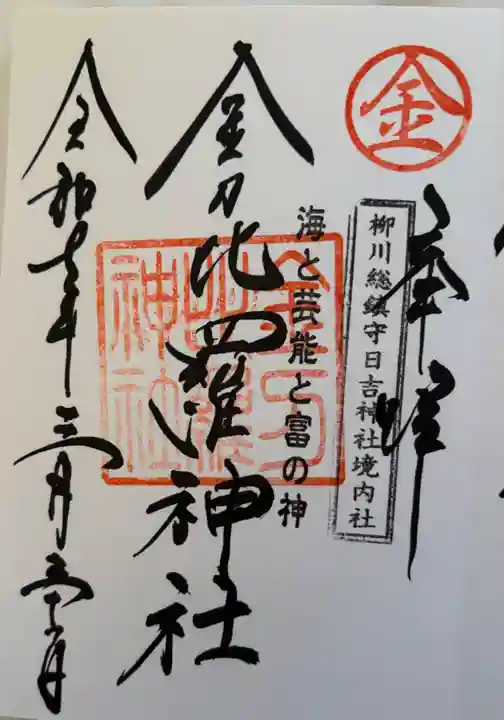 金
奉拝
柳川総鎮守日吉神社境内社
海と芸能と富の神
金刀比羅神社
金刀比羅神社
令和 年三月 日